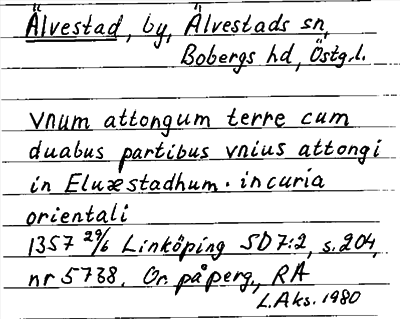 Älvestad, by, Älvestads sn,
Bobergs hd, Östg.l.
vnum attongum terre cum
duabus partibus vnius attongi
in Eluæstadhum. incuria
orientali
1357 29/6 Linköping SD7:2, s.204,
nr 5738. Or. på perg., RA
L.Aks. 1980